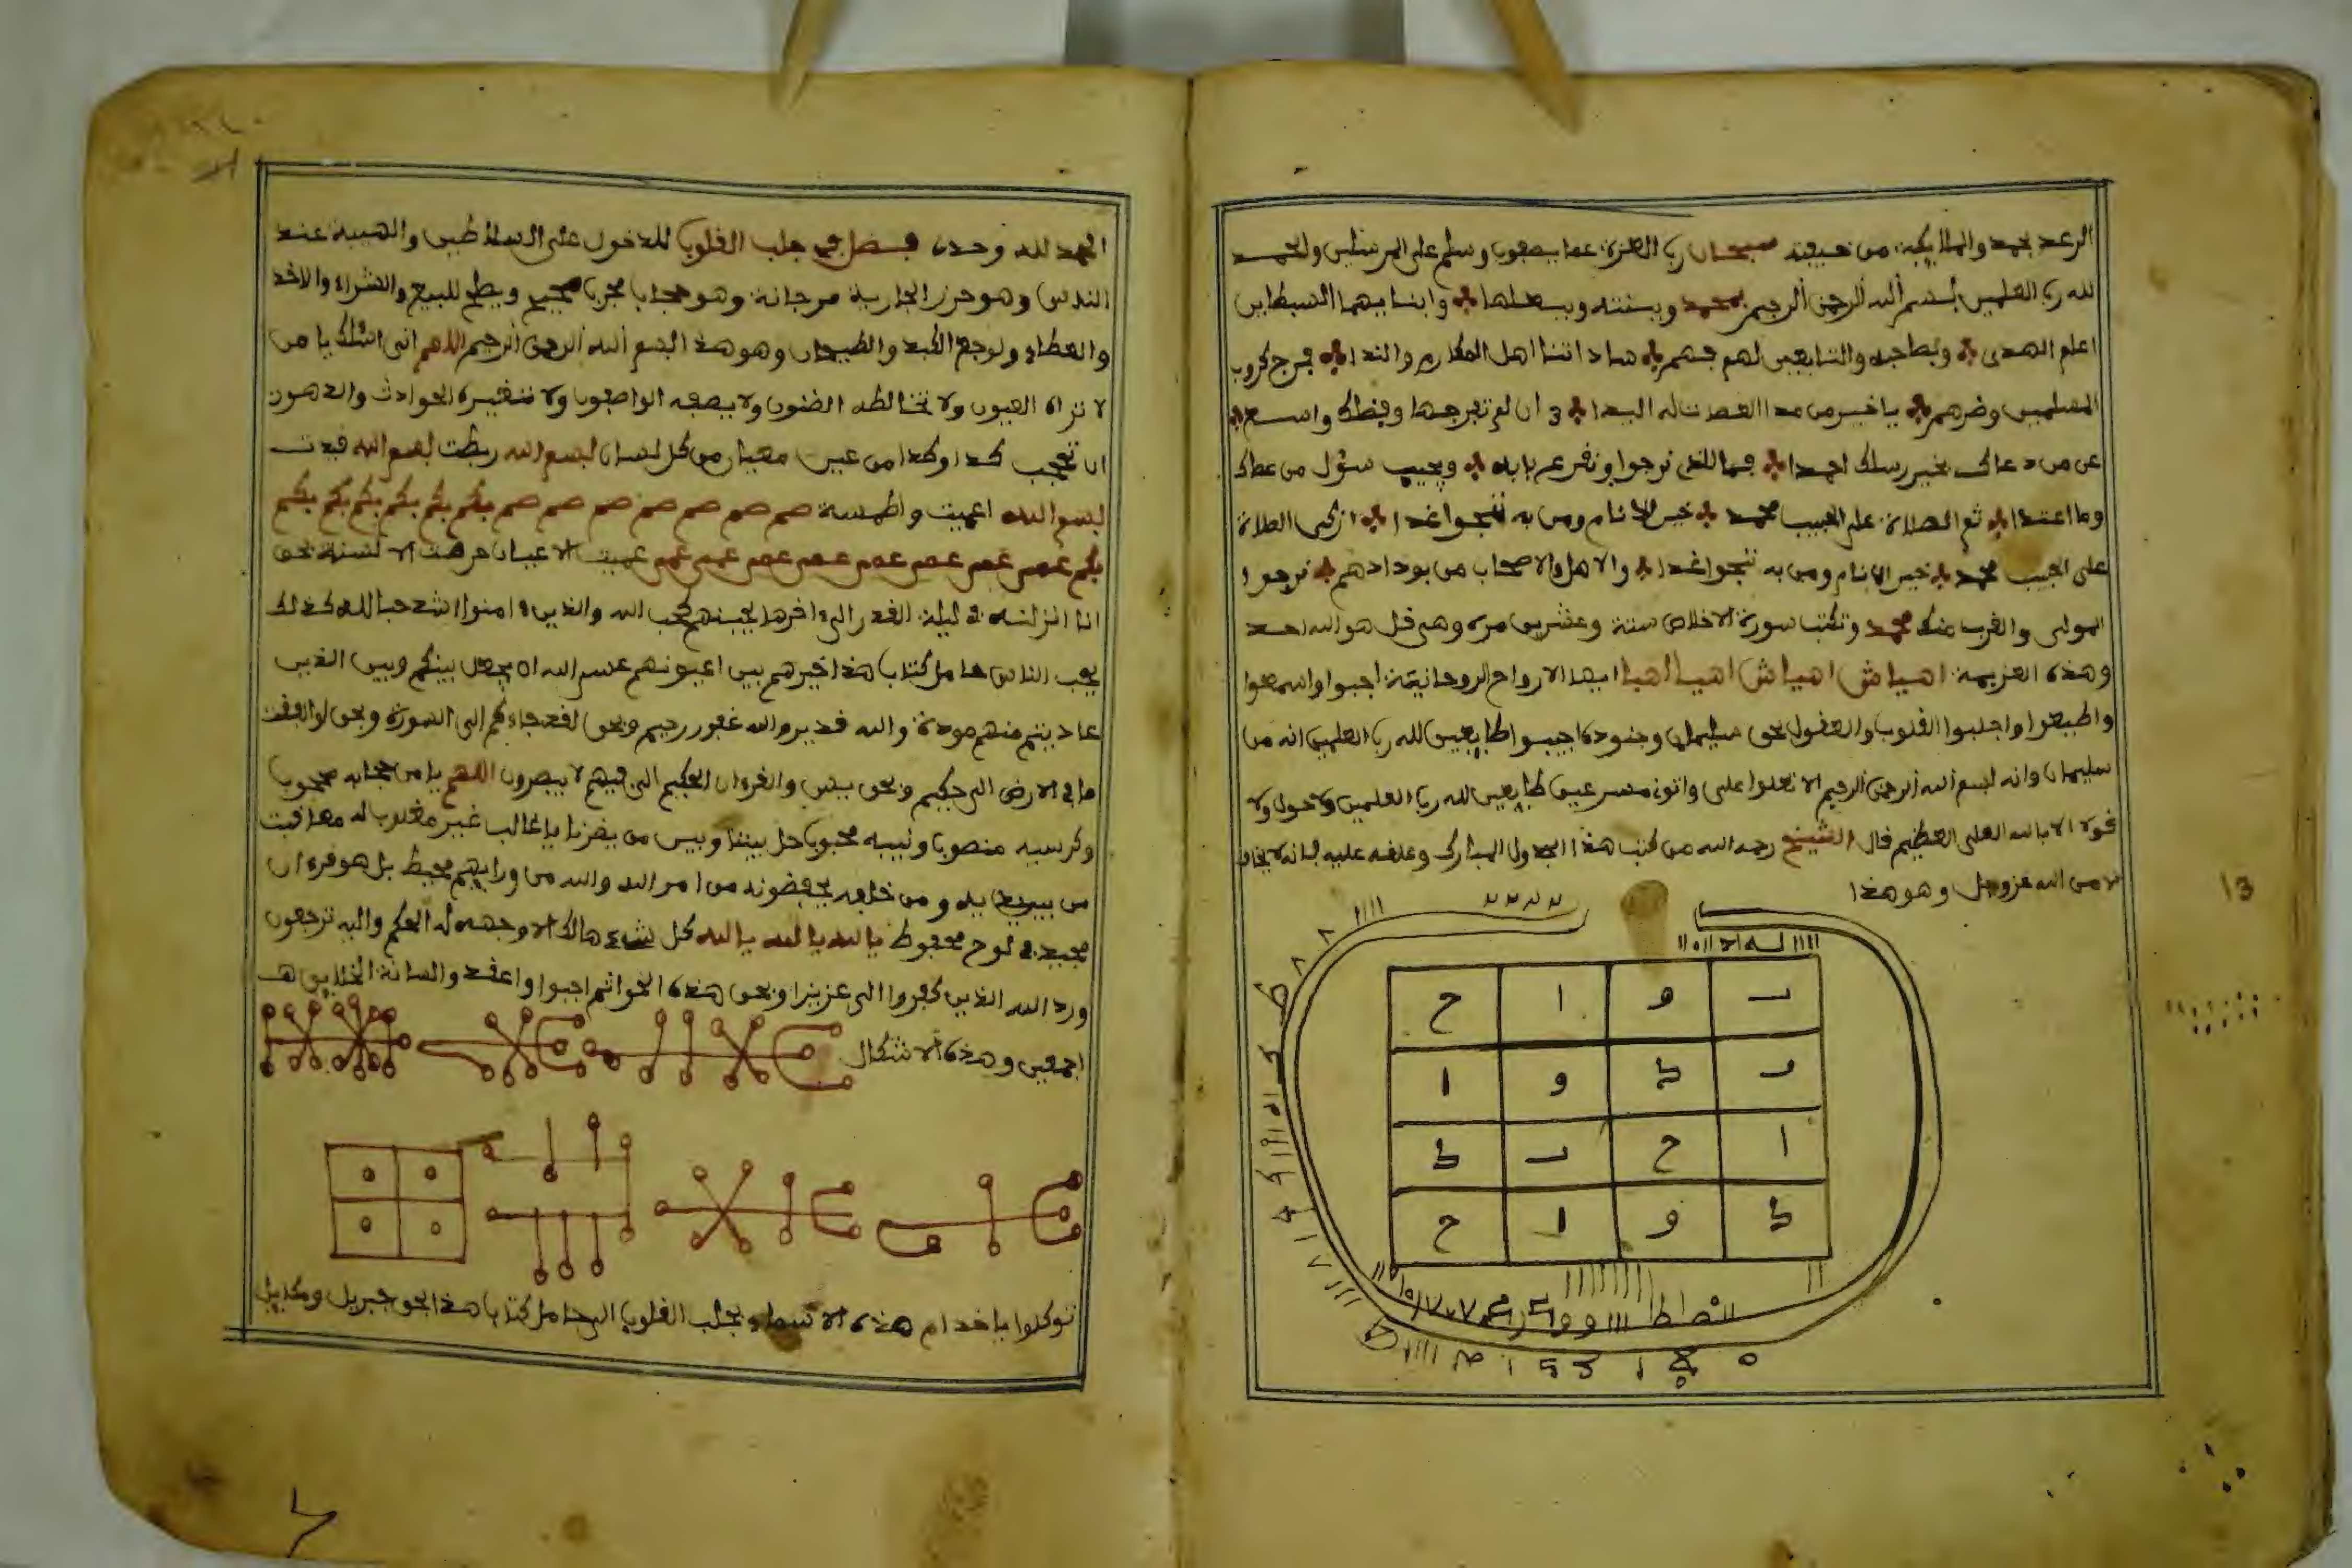 الرعد بحمده والملايكة من خيفته سبحان رب العزة عما يصفون وسلم على المرسلين والحمد
لله رب العلمين بسم الله الرحمن الرحيم بمحمد وبنته وببعلها وابنا يهما السبطاين
اعلم الهدى وبصاحبه والتابعين لهم فهم ساداتنا اهل المكارم والندا فرج كروب
المسلمين وضرهم ياخير من مدا العصات له اليدا 3 ان لم تفرجها وفضلك واسع
عن من دعاك بخير رسلك احمدا فما للذى نرجوا ونفرعم بابه ويجيب سؤل من عطاك
وما اعتدا ثم الصلاة على الحبيب محمد خير الانام ومن به ننجوا غدا ازكى الصلاة
على الحبيب محمد خير الانام ومن به ننجوا غدا والاهل والاصحاب من بودادهم نرجوا
المولى والقرب منك محمد وتكتب سورة الاخلاص ستة وعشرين مرة وهى قل هو الله احد
وهذه العزيمة اهياش اهياش اهيا اهيا ايها الارواح الروحانية اجبوا واسمعوا
واطيعوا واجلبوا القلوب والعقول بحق سليمان وجنوده اجيبوا طايعين لله رب العلمين انه من
سليمان وانه بسم الله الرحمن الرحيم الا تعلوا على واتونى مسرعين طايعين لله رب العلمين ولا حول ولا
قوة الا بالله العلى العظيم قال الشيخ رحمه الله من كتب هذا الجدول المبارك وعلقه عليه فانه لا يخاف
الا من الله عز وجل وهو هذا
ح ا و
ا و
ح ا
ح ا و
13
الحمد لله وحده فصل فى جلب القلوب للدخول على السلاطين والهيبة عند
الناس وهو حرز الجارية مرجانة وهو حجاب مجرب صحيح ويصلح للبيع والشراء والاخذ
والعطاء ولوجع الكبد والطيحان وهو هذا بسم الله الرحمن الرحيم اللهم انى اسئلك يا من
لا تراه العيون ولا تخالطه الضنون ولا يصفه الواصفون ولا تتغيره الحوادث والدهور
ان تحجب كذا وكذا من عين معيان من كل لسان بسم الله ربطت بسم الله قيدت
بسم الله اعميت واطمسة صم صم صم صم صم صم صم بكم بكم بكم بكم بكم بكم بكم
بكم عمى عمى عمى عمى عمى عمى عمى عمى عميت الاعيان خرصت الالسنة بحق
انا انزلنه فى ليلة القدر الى اخرها يحبنهم كحب الله والذين امنوا اشد حبا لله كذلك
يحب الناس حامل كتاب هذا خيرهم بين اعيونهم عسى الله ان يجعل بينكم وبين الذين
عاديتم منهم مودة والله قدير والله غفور رحيم وبحق لقد جاءكم الى السورة وبحق لو انفقت
ما فى الارض الى حكيم وبحق يس والقرءان الحكيم الى فهم لا يبصرون اللهم يا من حجابه محجوب
وكرسيه منصوب ونبيه محبوب حل بيننا وبين من يضرنا يا غالب غير مغلوب له معاقبت
من بين يديه ومن خلفه يحفضونه من امر الله والله من ورايهم محيط بل هو قرءان
مجيد فى لوح محفوظ يا الله يا الله يا الله كل شىء هالك الا وجهه له الحكم واليه ترجعون
ورد الله الذين كفروا الى عزيزا وبحق هذه الخواتم اجبوا واعقدوا السانة الخلايق
اجمعين وهذه الاشكال
توكلوا يا خدام هذه الاسماء بجلب القلوب الى حامل كتاب هذا بحق جبريل وميكاييل